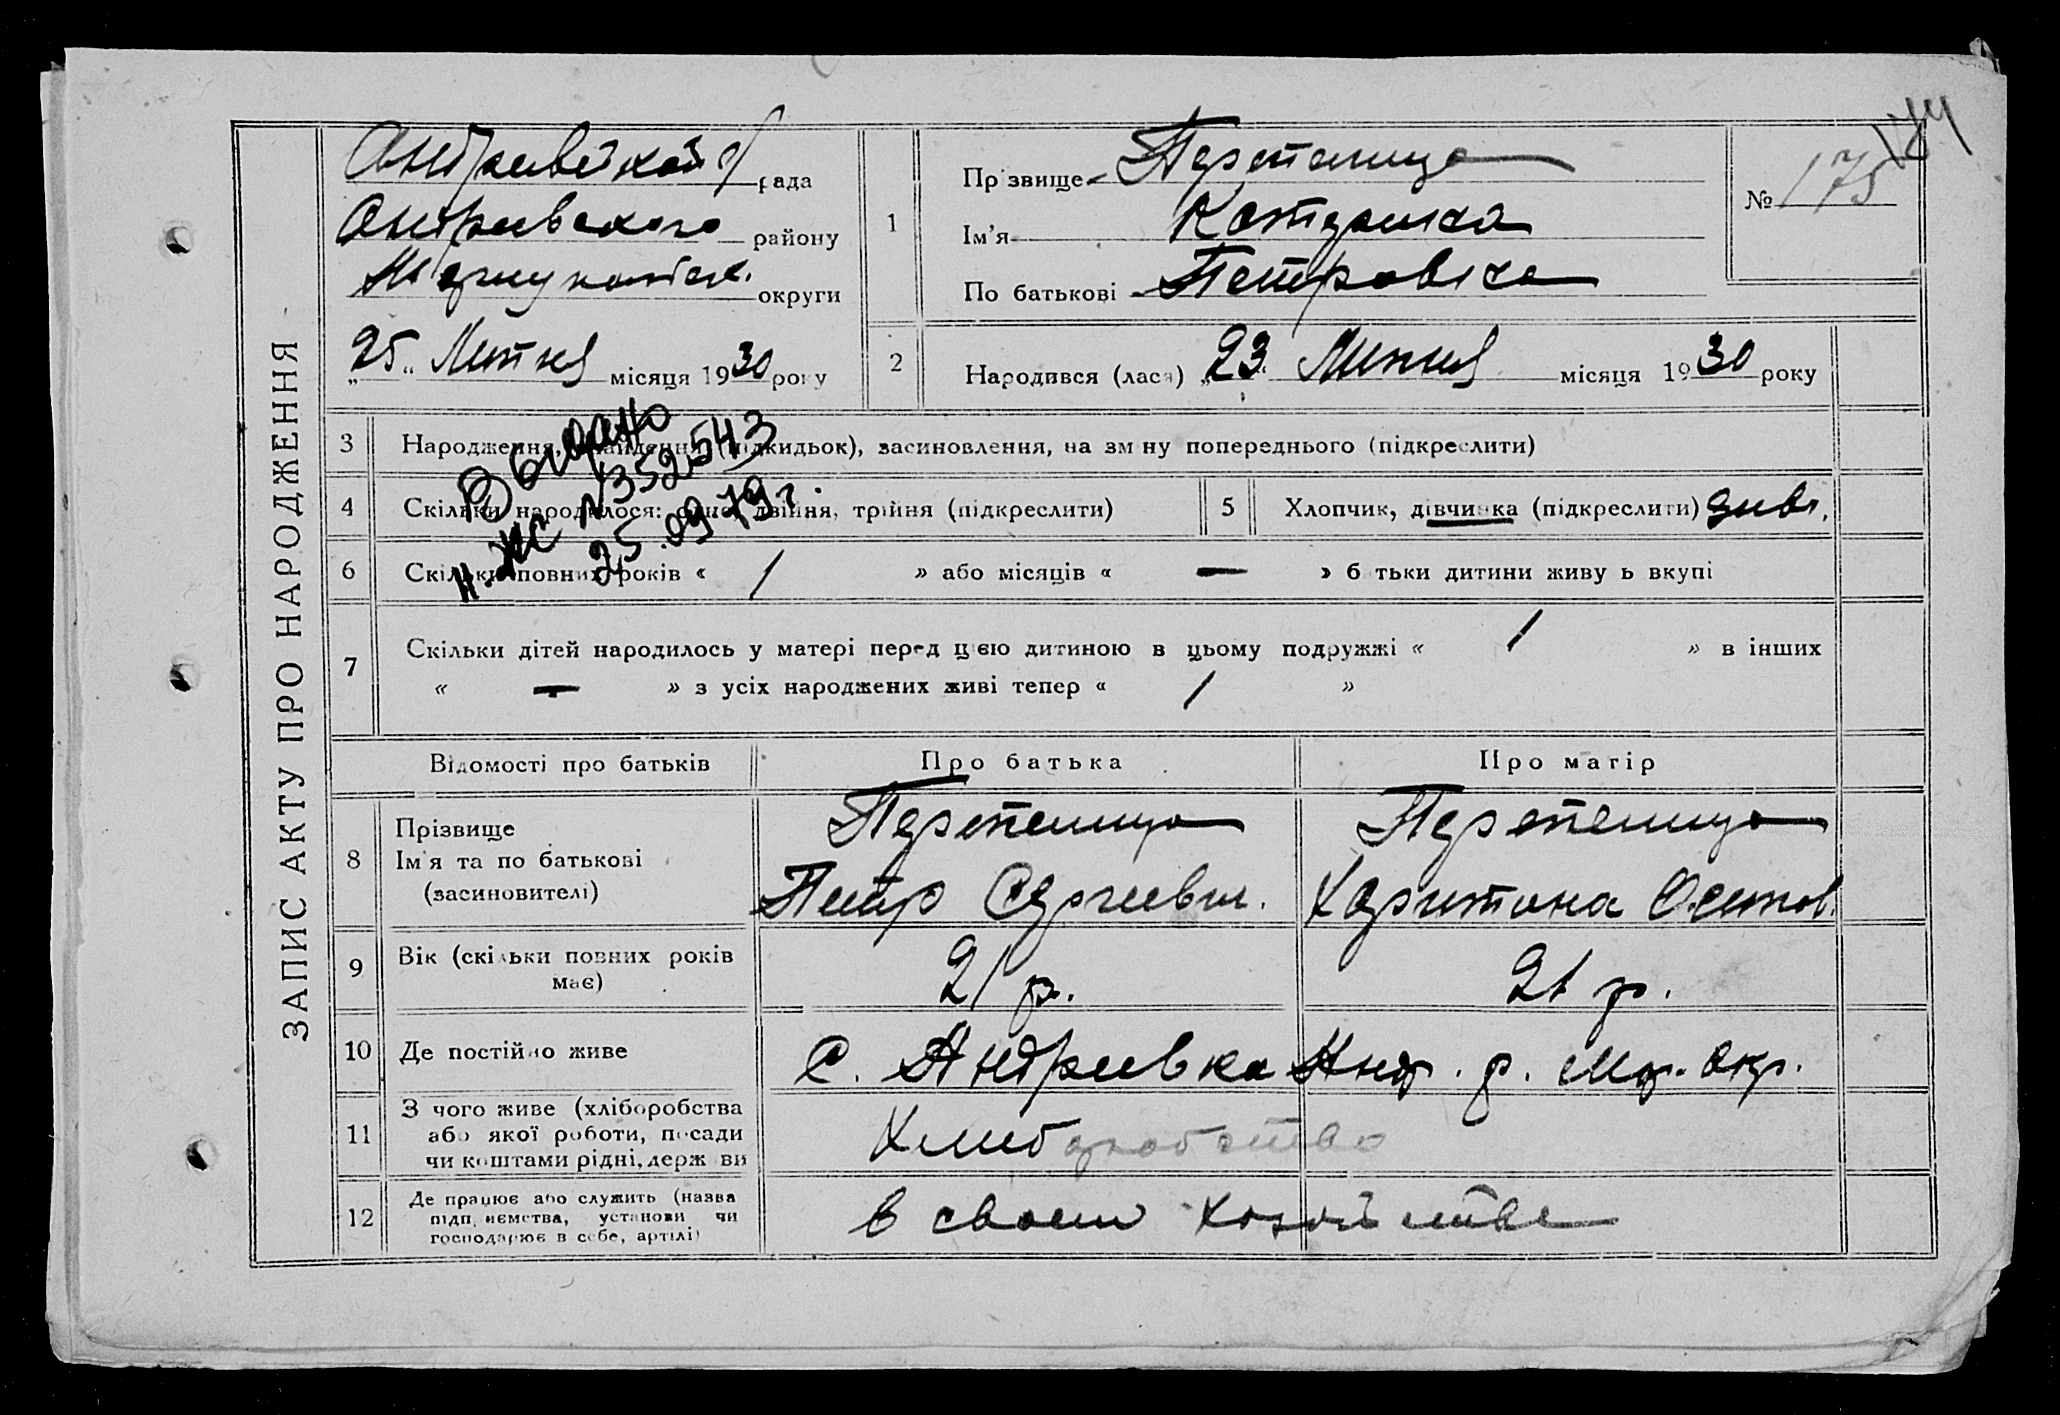 ЗАПИС АКТУ ПРО НАРОДЖЕННЯ
Андриевской с/рада
Андриевского району
Мариупольск. округи
„25„ Липня місяця 1930 року
1
Прізвище Перепелица
Ім'я Катерина
По батькові Петровна
№ 175
174
2
Народився (лася) „23„ Липня місяця 1930 року
3 Народження, знайдення (підкидьок), засиновлення, на зміну попереднього (підкреслити)
Выдано
н. ЖС № 352543
25.09.79 г.
4 Скільки народилося: одно, двійня, трійня (підкреслити)
5 Хлопчик, дівчинка (підкреслити) дивч.
6 Скільки повних років « 1 » або місяців « — » батьки дитини живуть вкупі
7 Скільки дітей народилось у матері перед цією дитиною в цьому подружжі « 1 » в інших
« — » з усіх народжених живі тепер « 1 »
Відомості про батьків Про батька Про матір
8 Прізвище
Ім'я та по батькові
(засиновителі)
Перепелица
Петр Сергеевич.
Перепелица
Харитина Осипов.
9 Вік (скільки повних років
має)
21 р. 21 р.
10 Де постійно живе с. Андреевка Андр. р. Мар. окр.
11 З чого живе (хліборобства
або якої роботи, посади
чи коштами рідні, держави
Хлиборобство
12 Де працює або служить (назва
підприємства, установи чи
господарює в себе, артілі)
в своем хозяйстве